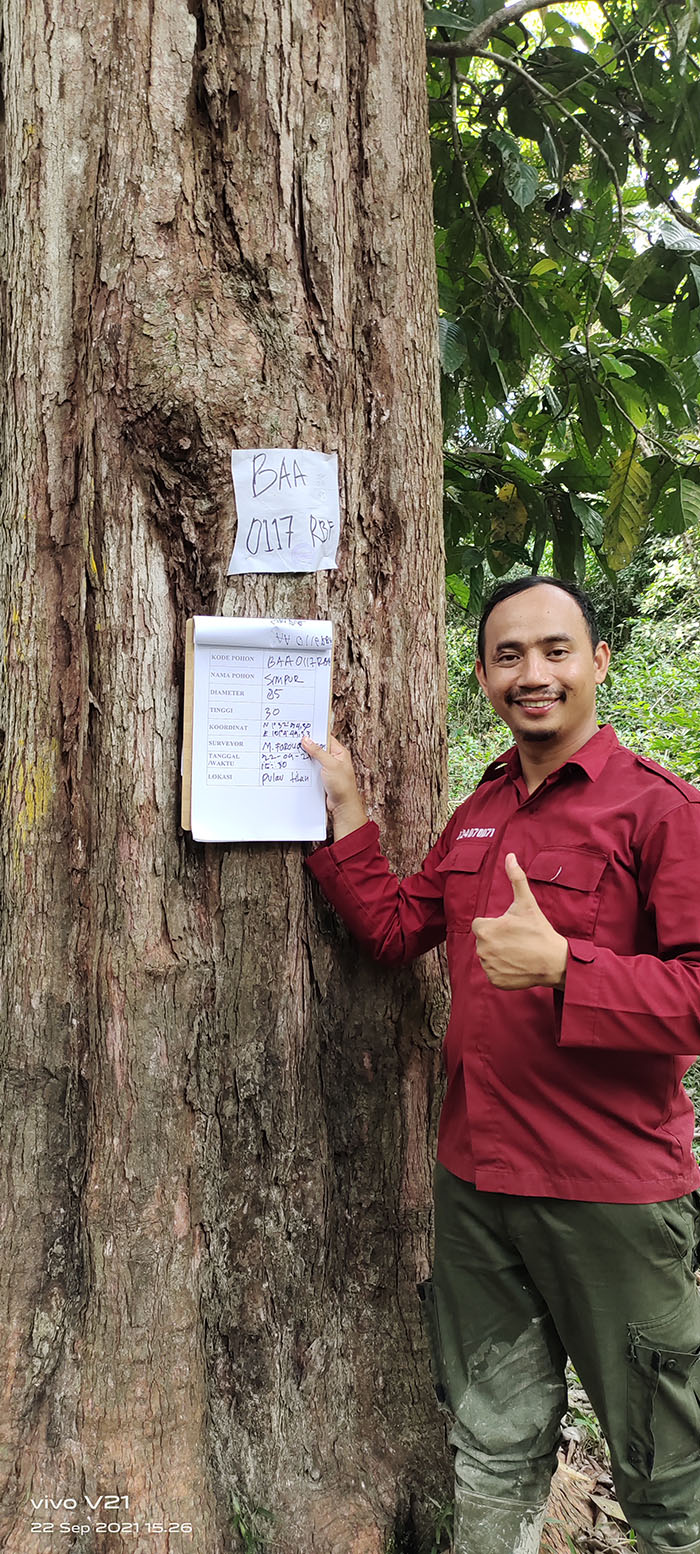 BAA
0117 RBF
KODE POHON BAA 0117 RBF
NAMA POHON SIMPUR
DIAMETER 85
TINGGI 30
KOORDINAT
SURVEYOR M.
TANGGAL /WAKTU 22-09-2
15:30
LOKASI Pulau
vivo V21
22 Sep 2021 15.26